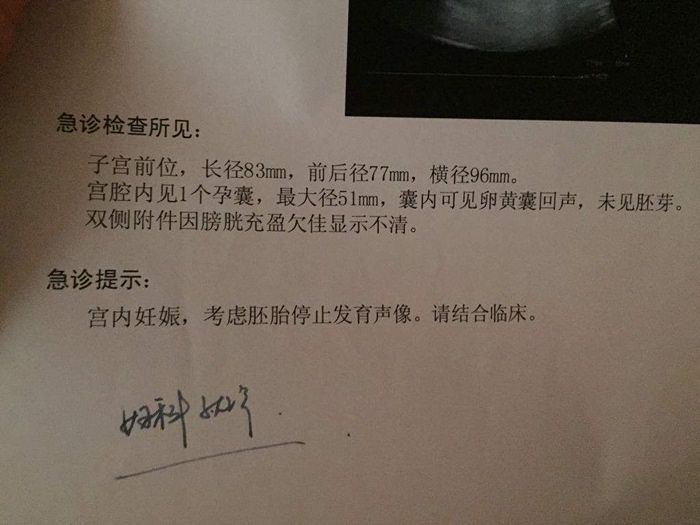 急诊检查所见：
子宫前位，长径83mm，前后径77mm，横径96mm。
宫腔内见1个孕囊，最大径51mm，囊内可见卵黄囊回声，未见胚芽。
双侧附件因膀胱充盈欠佳显示不清。
急诊提示：
宫内妊娠，考虑胚胎停止发育声像。请结合临床。
妇科